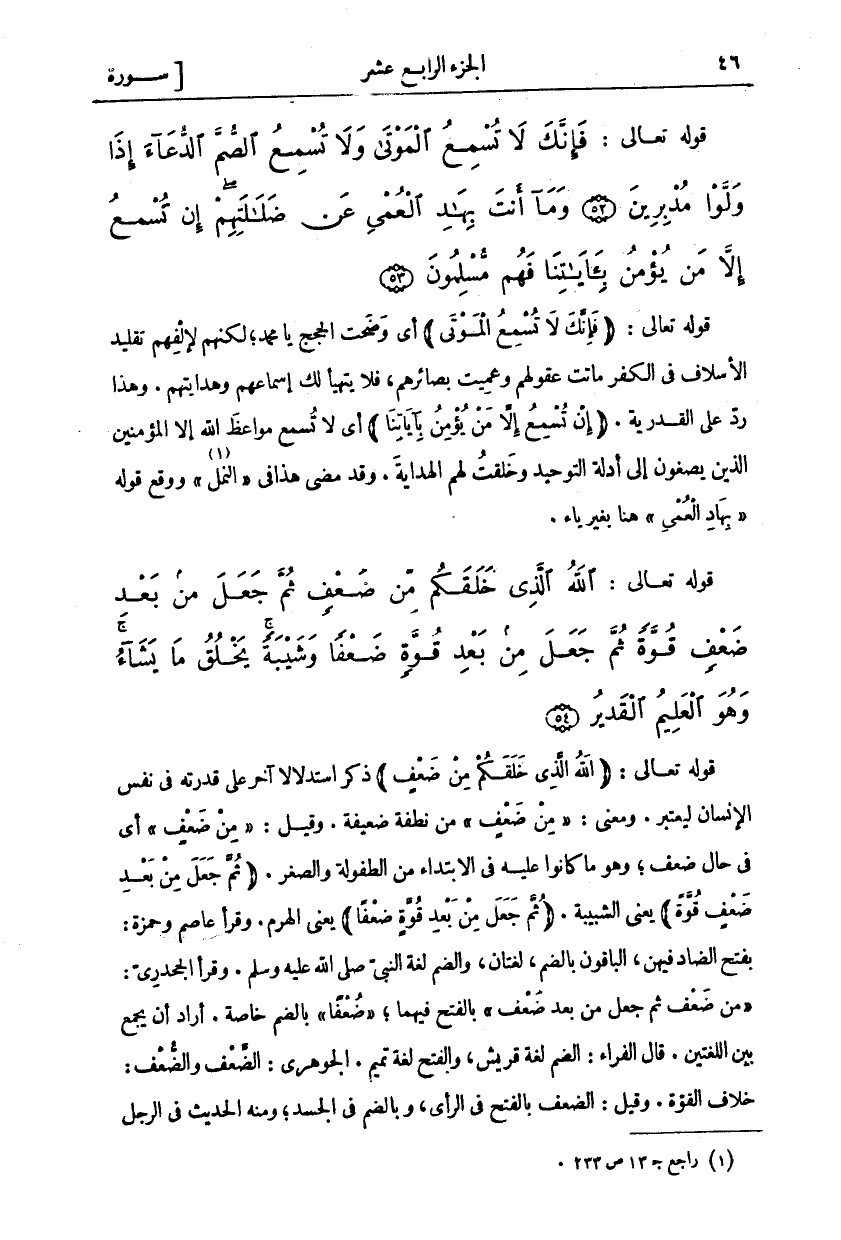 ٤٦ الجزء الرابع عشر [ ســـورة
قوله تعـالى : فَإِنَّكَ لَا تُسْمِعُ ٱلْمَوْتَىٰ وَلَا تُسْمِعُ ٱلصُّمَّ ٱلدُّعَآءَ إِذَا
وَلَّوْا مُدْبِرِينَ ﴿٥٢﴾ وَمَآ أَنتَ بِهَٰدِ ٱلْعُمْيِ عَن ضَلَٰلَتِهِمْ ۖ إِن تُسْمِعُ
إِلَّا مَن يُؤْمِنُ بِـَٔايَٰتِنَا فَهُم مُّسْلِمُونَ ﴿٥٣﴾
قوله تعالى : ﴿ فَإِنَّكَ لَا تُسْمِعُ الْمَوْتَى ﴾ أى وَضَحت الحجج يا محمد؛ لكنهم لإلْفِهم تقليد
الأسلاف فى الكفر ماتت عقولهم وعميت بصائرهم، فلا يتهيأ لك إسماعهم وهدايتهم . وهذا
ردّ على القـدرية . ﴿ إِنْ تُسْمِعُ إِلَّا مَنْ يُؤْمِنُ بِآيَاتِنَا ﴾ أى لا تُسمع مواعظَ الله إلا المؤمنين
الذين يصغون إلى أدلة التوحيد وخَلقتُ لهم الهدايةَ . وقد مضى هذا فى « النّمل » (١) ووقع قوله
« بِهَادِ الْعُمْيِ » هنا بغير ياء .
قوله تعـالى : ٱللَّهُ ٱلَّذِى خَلَقَكُم مِّن ضَعْفٍ ثُمَّ جَعَلَ مِنۢ بَعْدِ
ضَعْفٍ قُوَّةً ثُمَّ جَعَلَ مِنۢ بَعْدِ قُوَّةٍ ضَعْفًا وَشَيْبَةً ۚ يَخْلُقُ مَا يَشَآءُ ۚ
وَهُوَ ٱلْعَلِيمُ ٱلْقَدِيرُ ﴿٥٤﴾
قوله تعـالى : ﴿ اللهُ الَّذِى خَلَقَكُمْ مِنْ ضَعْفٍ ﴾ ذكر استدلالا آخر على قدرته فى نفس
الإنسان ليعتبر . ومعنى : « مِنْ ضَعْفٍ » من نطفة ضعيفة . وقيـل : « مِنْ ضَعْفٍ » أى
فى حال ضعف ؛ وهو ما كانوا عليـه فى الابتداء من الطفولة والصغر . ﴿ ثُمَّ جَعَلَ مِنْ بَعْـدِ
ضَعْفٍ قُوَّةً ﴾ يعنى الشبيبة . ﴿ ثُمَّ جَعَلَ مِنْ بَعْدِ قُوَّةٍ ضَعْفًا ﴾ يعنى الهرم . وقرأ عاصم وحمزة :
بفتح الضاد فيهن ، الباقون بالضم ، لغتان ، والضم لغة النبىّ صلى الله عليه وسلم . وقرأ الجحدرىّ :
«من ضَعْف ثم جعل من بعد ضَعْف » بالفتح فيهما ؛ «ضُعْفًا» بالضم خاصة . أراد أن يجمع
بين اللغتين . قال الفراء : الضم لغة قريش، والفتح لغة تميم . الجوهرى : الضَّعْف والضُّعْف :
خلاف القوّة . وقيل : الضعف بالفتح فى الرأى، وبالضم فى الجسد؛ ومنه الحديث فى الرجل
(١) راجع جـ ١٣ ص ٢٣٣ .